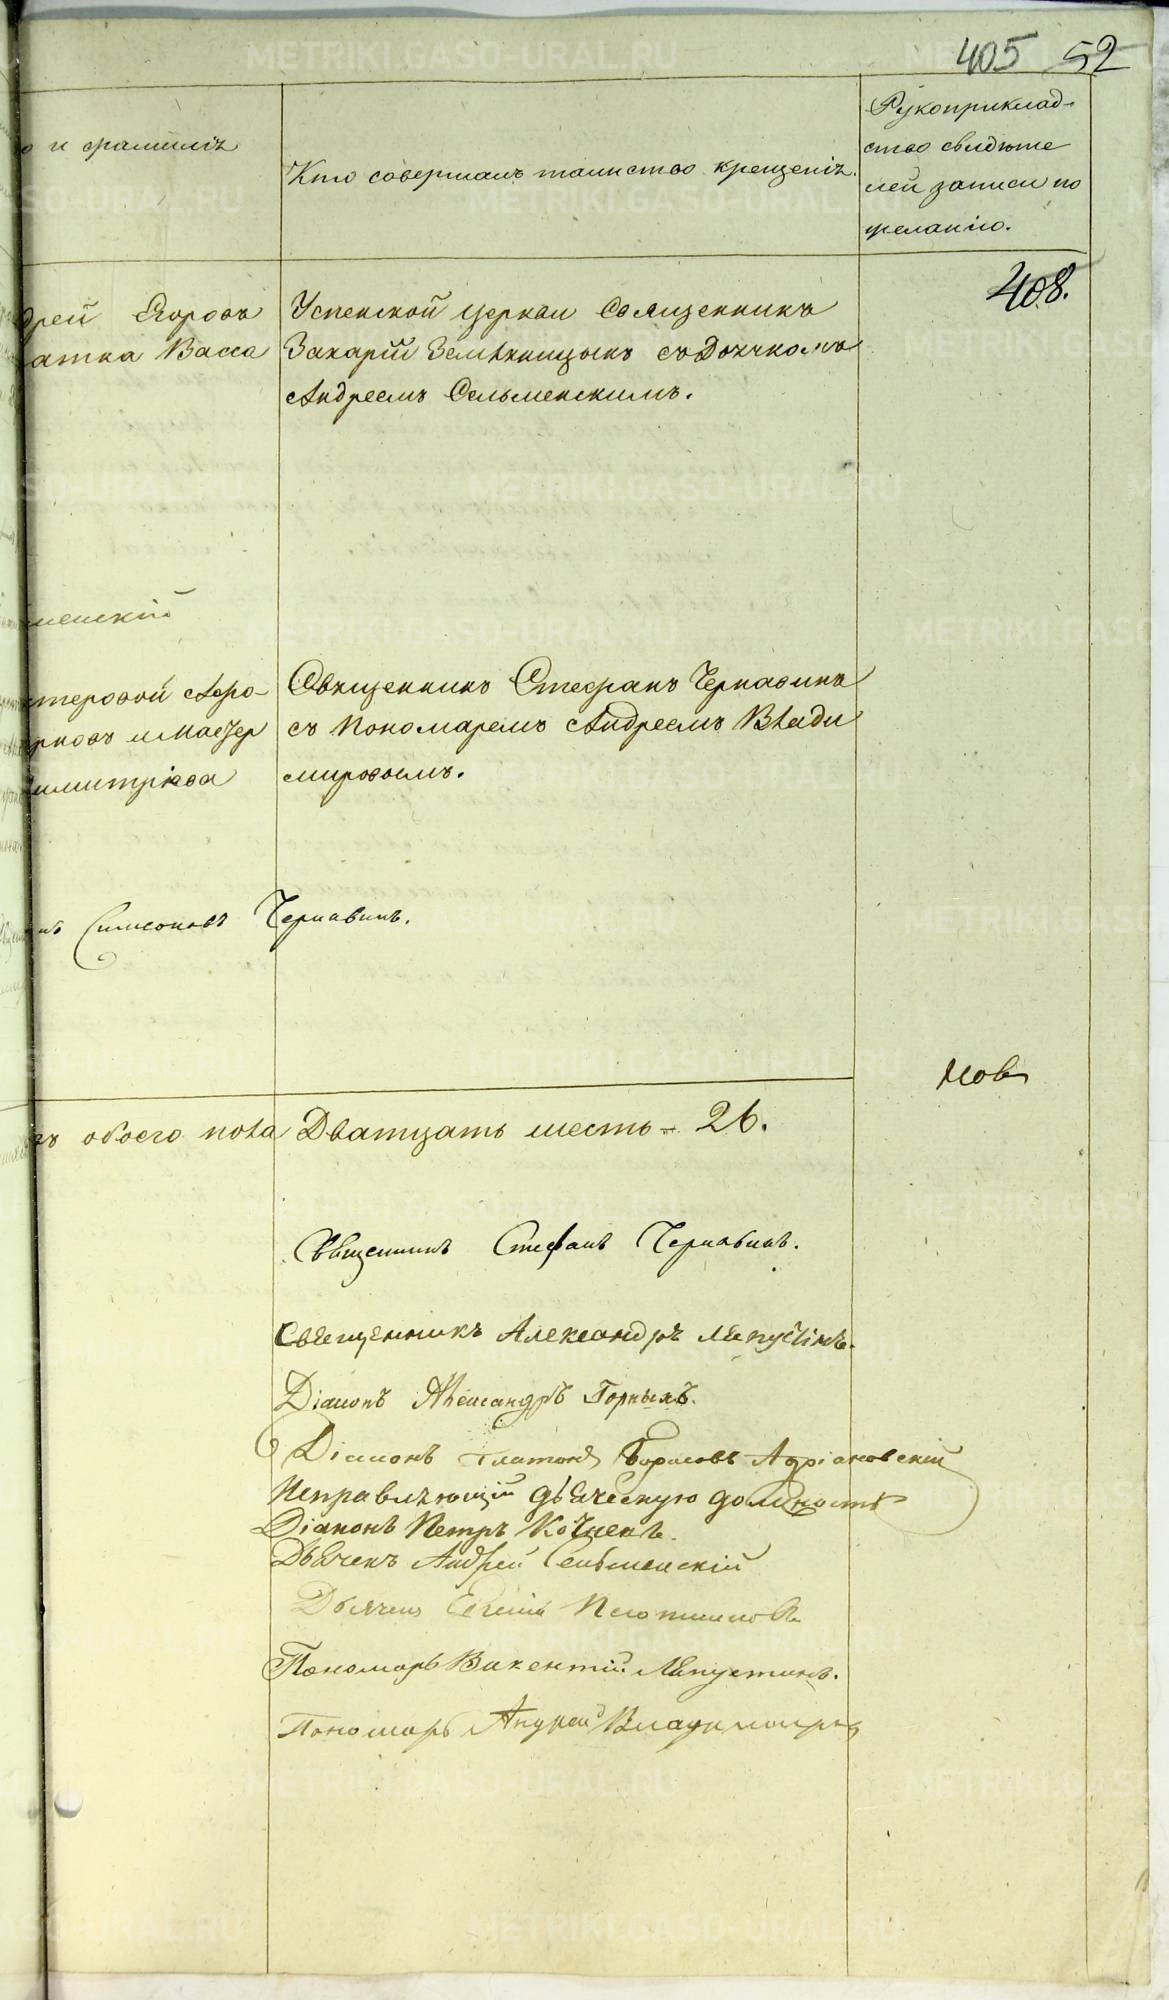 405 52
о и фамилія
Кто совершалъ таинство крещенія.
Рукоприклад-
ство свидѣте
лей записи по
желанію.
408.
дрей Егоровъ
атка Васса
Успенской церкви Священникъ
Захарій Земляницынъ съ Дьячкомъ
Андреемъ Сельменскимъ.
менскій
стеровой Афо-
рновъ и мастер
имитріева
Священникъ Стефанъ Чернавинъ
съ Пономаремъ Андреемъ Влади
мировымъ.
нъ Симеоновъ Чернавинъ.
нов
ъ обоего пола Дватцать шесть - 26.
Священникъ Стефанъ Чернавинъ.
Священникъ Александръ Лапустинъ.
Діаконъ Александръ Горныхъ.
Діаконъ Платонъ Борисовъ Адріановскій
Исправляющій дьяческую должность
Діаконъ Петръ Кочневъ.
Дьячекъ Андрей Сельменскій
Дьячекъ Евгеній
Пономарь Викентій Лапустинъ.
Пономарь Андрей Владимировъ
METRIKI.GASO-URAL.RU